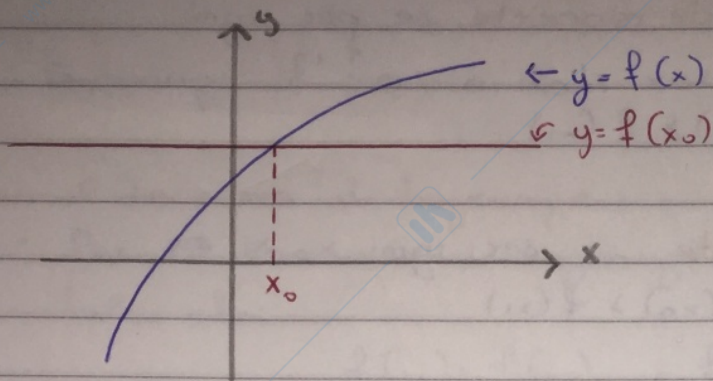 y
← y = f(x)
↙ y = f(x₀)
x
x₀